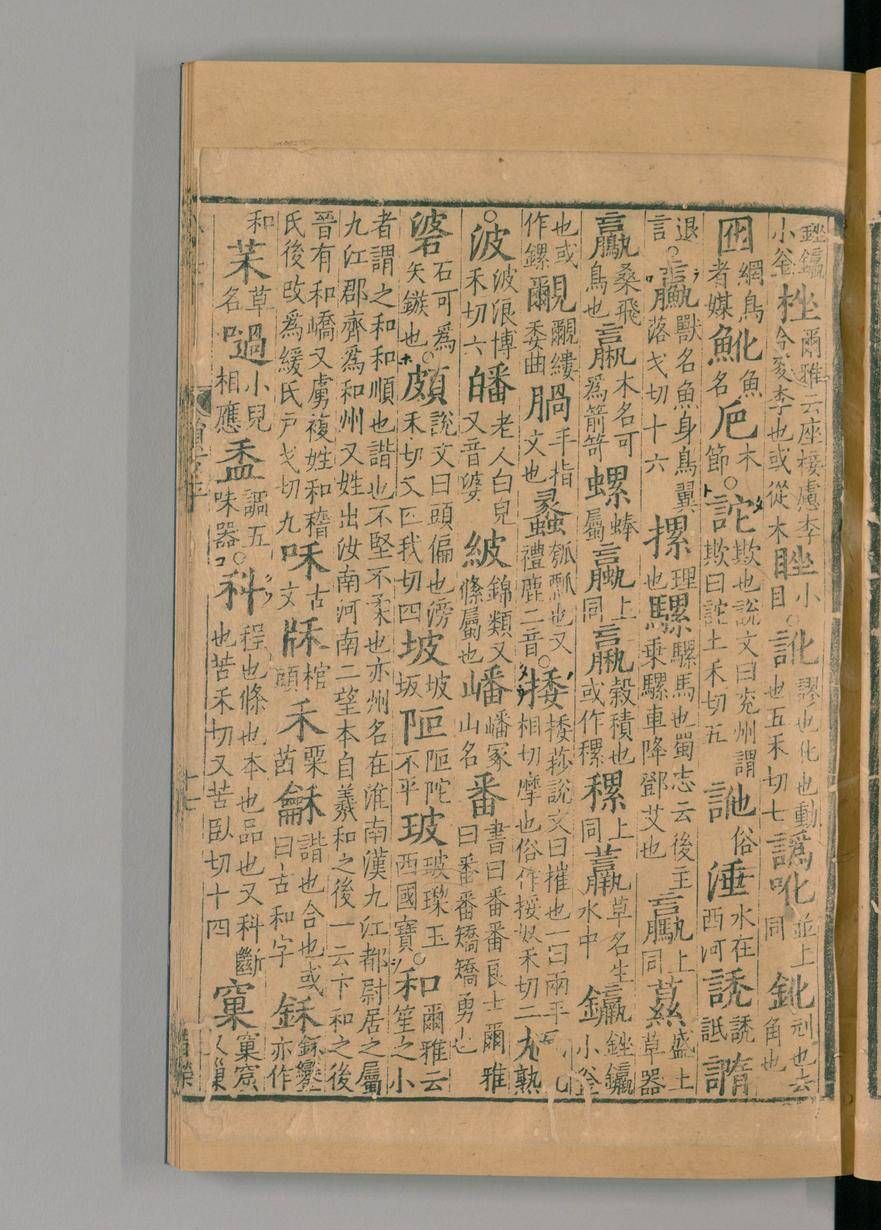 銼鑼小釜 桽 爾雅云座椄慮李今夌李也或從木 睉 小目 ○訛 謬也化也動也五禾切七 譌吪 並上同 鈋 刓也去角也
囮 網鳥者媒 魤 魚名 厄 木節 ○詑 欺也說文曰兖州謂欺曰詑土禾切五 訑 俗 涶 水在西河 誘 誘詆
退言 ○臝 獸名魚身鳥翼落戈切十六 摞 理也 騾 騾馬也蜀志云後主乘騾車降鄧艾也 驘 上同 蔂 盛土草器
鸁 桑飛鳥也 木名可爲箭笴 螺 蚌屬 蠃 上同 穀積也或作稞 上同 草名生水中 鑼 銼鑼小釜
也或作鏍 覶 覶縷委曲 腡 手指文也 蠡 瓠瓢也又禮鹿二音 ○捼 捼莏說文曰摧也一曰兩手相切摩也俗作挼奴禾切二
○波 波浪博禾切六 皤 老人白皃又音婆 紴 錦類又絛屬也 嶓 嶓冢山名 番 書曰番番良士爾雅曰番番矯矯勇也
碆 石可爲矢鏃也 ○頗 說文曰頭偏也滂禾切又匹我切四 坡 坡坂 不平 玻 玻瓈玉西國寶 ○和 爾雅云笙之小
者謂之和和順也諧也不堅不柔也亦州名在淮南漢九江都尉居之屬
九江郡齊爲和州又姓出汝南河南二望本自羲和之後一云卞和之後
晉有和嶠又虜複姓和稽氏後改爲緩氏戶戈切九 咊 古文 棺頭 禾 粟苗 龢 諧也合也或曰古和字 鉌 鉌鑾亦作
和 草名 㗻 小兒相應 盉 調五味器 ○科 程也條也本也品也又科斷也苦禾切又苦臥切十四 窠 窠窟